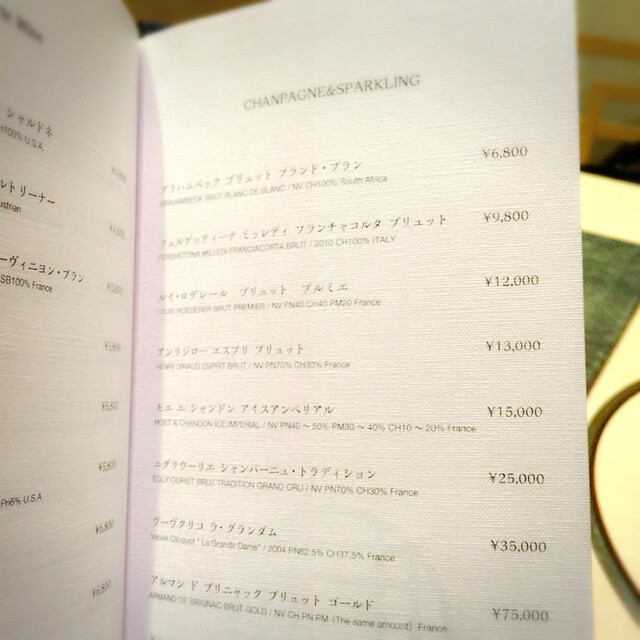 シャルドネ
H100% U.S.A
ルトリーナー
ustrian
ーヴィニヨン・ブラン
SB100% France
¥5,800
¥5,800
¥5,800
¥5,800
Pn6% U.S.A
¥6,800
¥6,800
CHANPAGNE&SPARKLING
グラハムベック ブリュット ブランド・ブラン ¥6,800
GRAHAMBECK BRUT BLANC DE BLANC / NV CH100% South Africa
フェルゲッティーナ ミッレディ フランチャコルタ ブリュット ¥9,800
FERGHETTINA MILLEDI FRANCIACORTA BRUT / 2010 CH100% ITALY
ルイ・ロデレール ブリュット プルミエ ¥12,000
LOUIS ROEDERER BRUT PREMIER / NV PN40 CH40 PM20 France
アンリジロー エスプリ ブリュット ¥13,000
HENRI GIRAUD ESPRIT BRUT / NV PN70% CH30% France
モエ エ シャンドン アイスアンペリアル ¥15,000
MOET & CHANDON ICE IMPERIAL / NV PN40 ～ 50% PM30 ～ 40% CH10 ～ 20% France
エグリウーリエ シャンパーニュ・トラディション ¥25,000
EGLY-OURIET BRUT TRADITION GRAND CRU / NV PN70% CH30% France
ヴーヴクリコ ラ・グランダム ¥35,000
Veuve Clicquot " La Grande Dame" / 2004 PN62.5% CH37.5% France
アルマン ド ブリニャック ブリュット ゴールド ¥75,000
ARMAND DE BRIGNAC BRUT GOLD / NV CH PN PM (The same amount) France